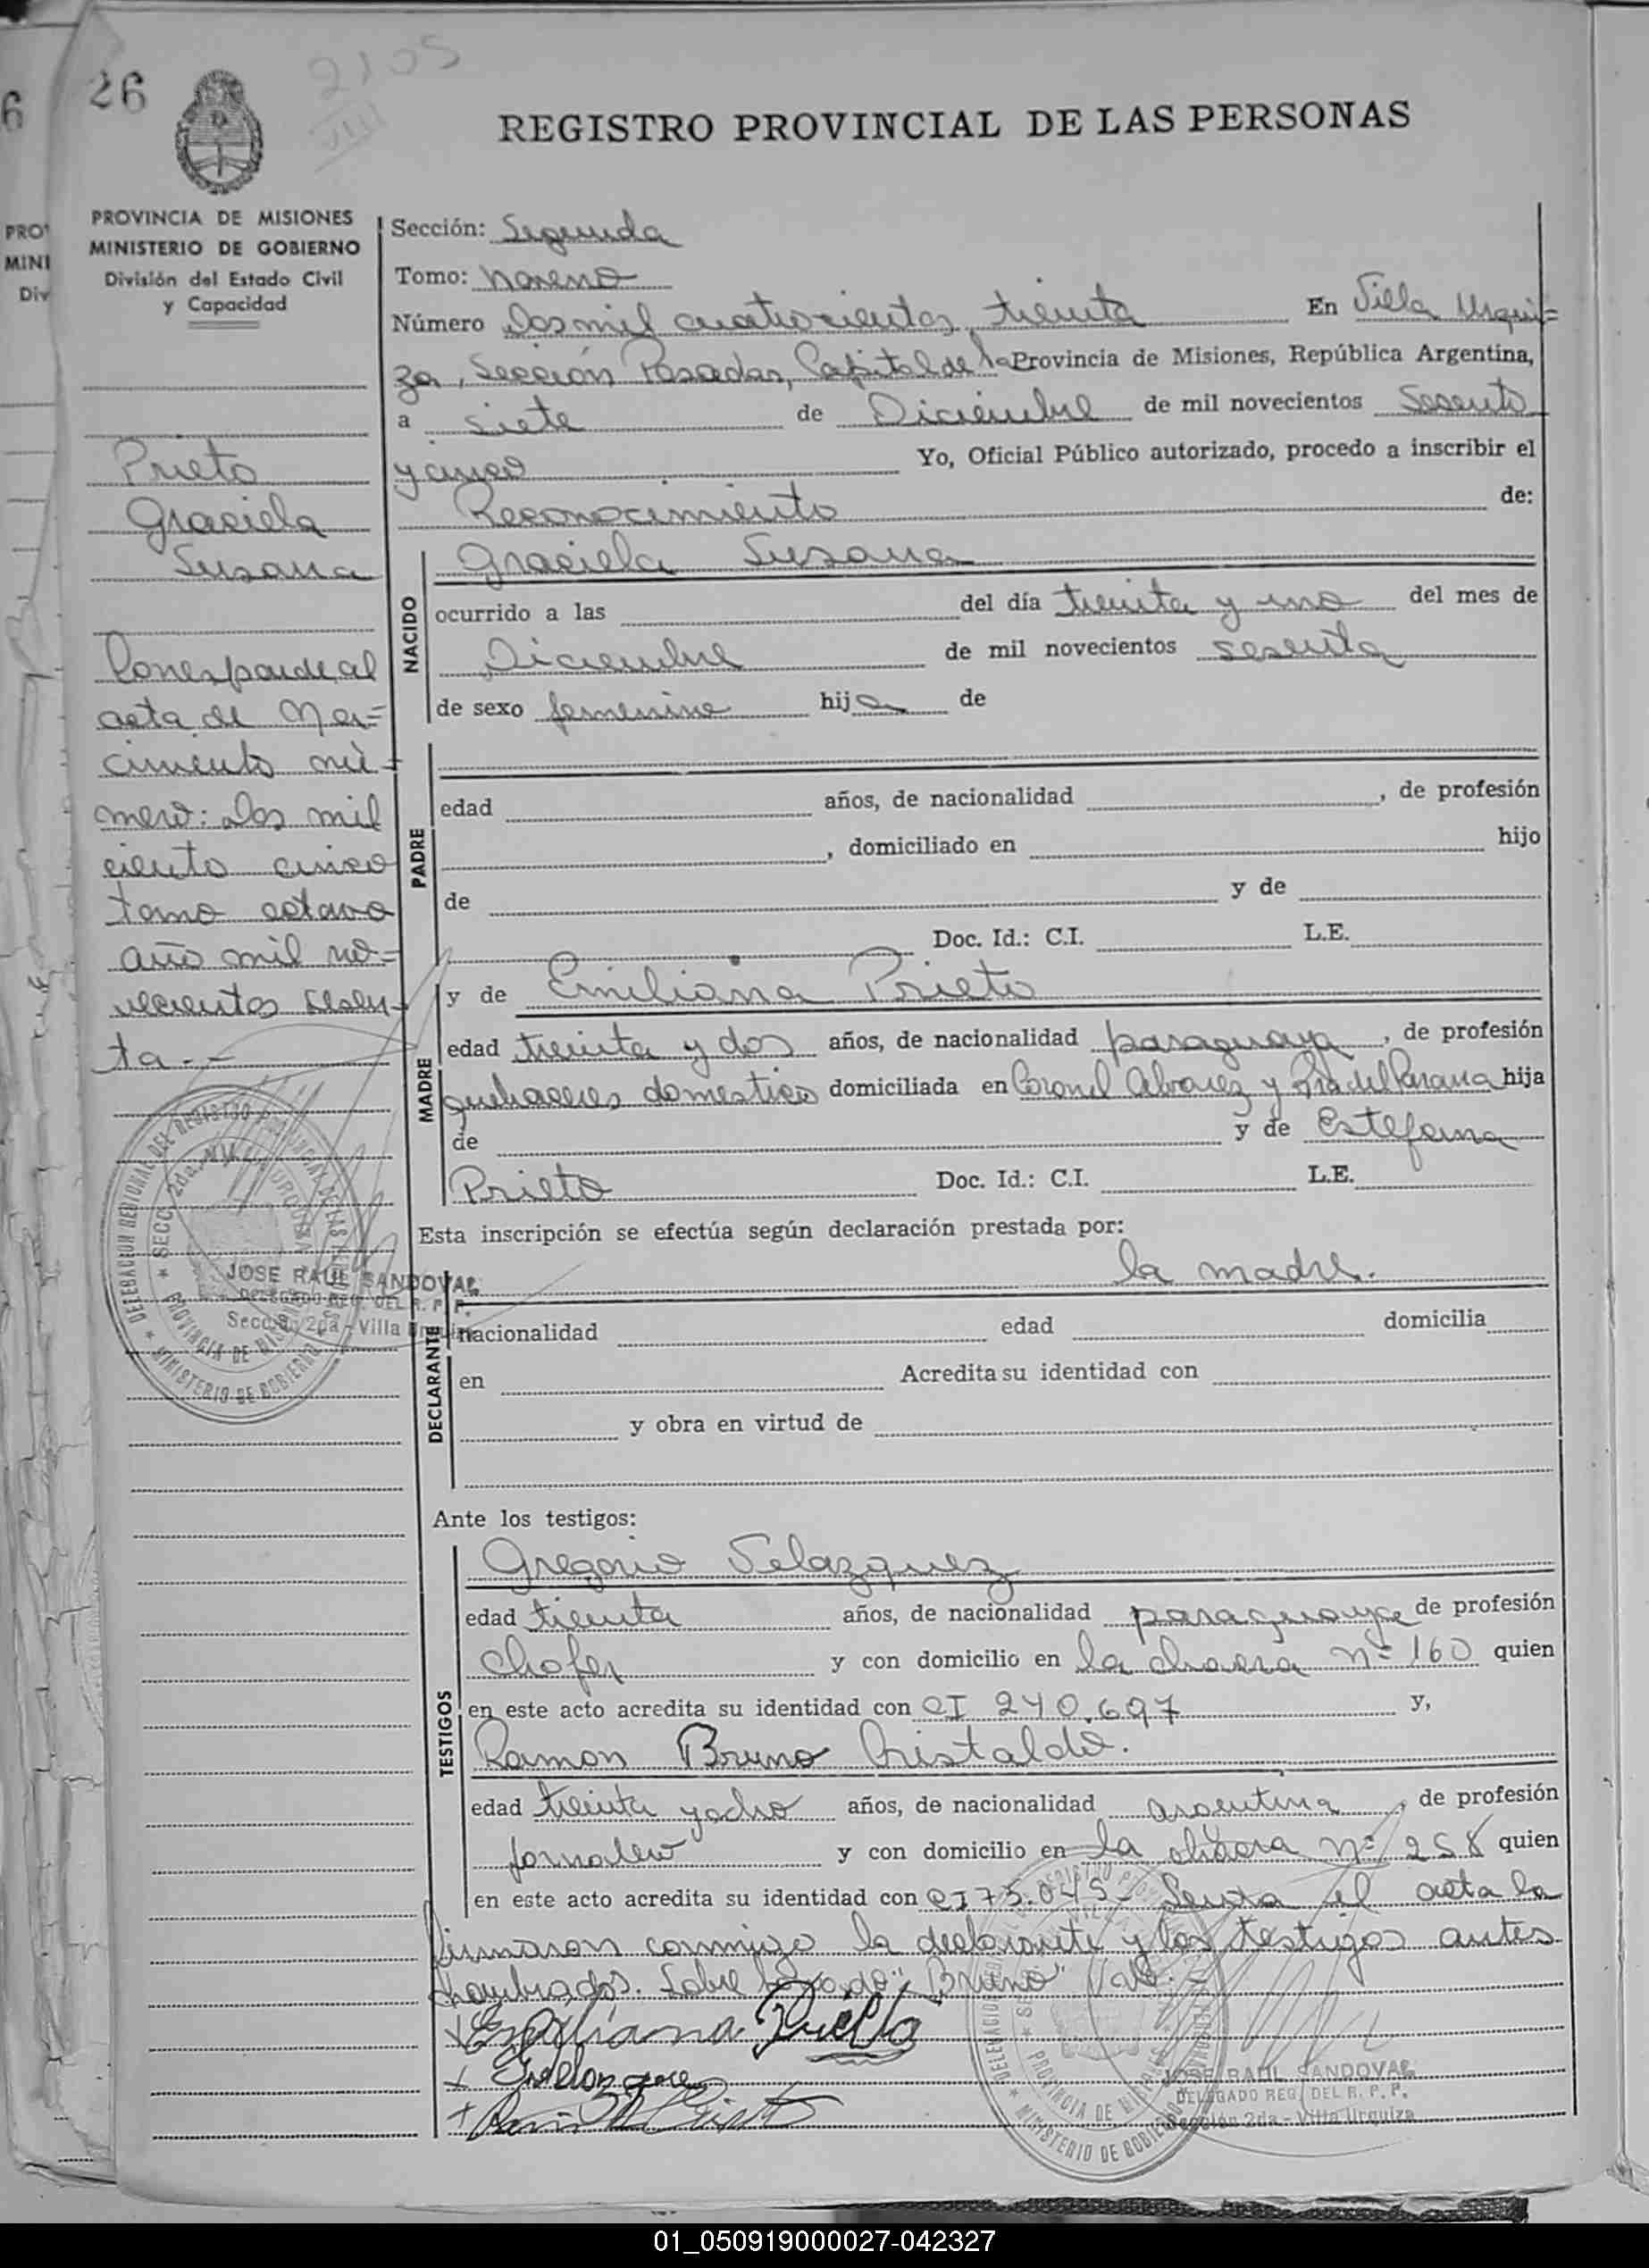 26
2105
VIII
REGISTRO PROVINCIAL DE LAS PERSONAS
PROVINCIA DE MISIONES
MINISTERIO DE GOBIERNO
División del Estado Civil
y Capacidad
Prieto
Graciela
Susana
Corresponde al
acta de Na=
cimiento nú-
mero: Dos mil
ciento cinco
tomo octavo
año mil no=
vecientos sesen-
ta.-
Sección: Segunda
Tomo: Noveno
Número Dos mil cuatrocientos treinta En Villa Urqui=
za, Sección Posadas, Capital de la Provincia de Misiones, República Argentina,
a siete de Diciembre de mil novecientos Sesenta
y cinco Yo, Oficial Público autorizado, procedo a inscribir el
Reconocimiento de:
NACIDO
Graciela Susana
ocurrido a las del día treinta y uno del mes de
Diciembre de mil novecientos sesenta
de sexo femenino hija de
PADRE
edad años, de nacionalidad , de profesión
, domiciliado en hijo
de y de
Doc. Id.: C.I. L.E.
MADRE
y de Emiliana Prieto
edad treinta y dos años, de nacionalidad paraguaya, de profesión
quehaceres domesticos domiciliada en Coronel Alvarez y del Parana hija
de y de Estefana
Prieto Doc. Id.: C.I. L.E.
Esta inscripción se efectúa según declaración prestada por:
DECLARANTE
la madre.
nacionalidad edad domicilia
en Acredita su identidad con
y obra en virtud de
Ante los testigos:
TESTIGOS
Gregorio Velazquez
edad treinta años, de nacionalidad paraguaya de profesión
Chofer y con domicilio en la chacra nº 160 quien
en este acto acredita su identidad con CI 240.697 y,
Ramon Bruno Cristaldo.
edad treinta y ocho años, de nacionalidad argentina, de profesión
jornalero y con domicilio en la chacra nº 258 quien
en este acto acredita su identidad con CI 75.045- el acta la
firmaron conmigo la declarante y los testigos antes
nombrados. Sobre "Bruno" Vale.
Emiliana Prieto
DELEGACION REGIONAL DEL REGISTRO PROVINCIAL DE LAS
SECC. 2da. VILLA URQUIZA
PROVINCIA DE MISIONES
MINISTERIO DE GOBIERNO
JOSE RAUL SANDOVAL
DELEGADO REG. DEL R. P. P.
Sección 2da - Villa Urquiza
JOSE RAUL SANDOVAL
DELEGADO REG. DEL R. P. P.
Sección 2da - Villa Urquiza
PROVINCIA DE MISIONES
MINISTERIO DE GOBIERNO
01_050919000027-042327